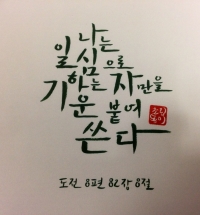 나는
일심으로
하는 자만을
기운 붙여
쓴다
도전 8편 82장 8절